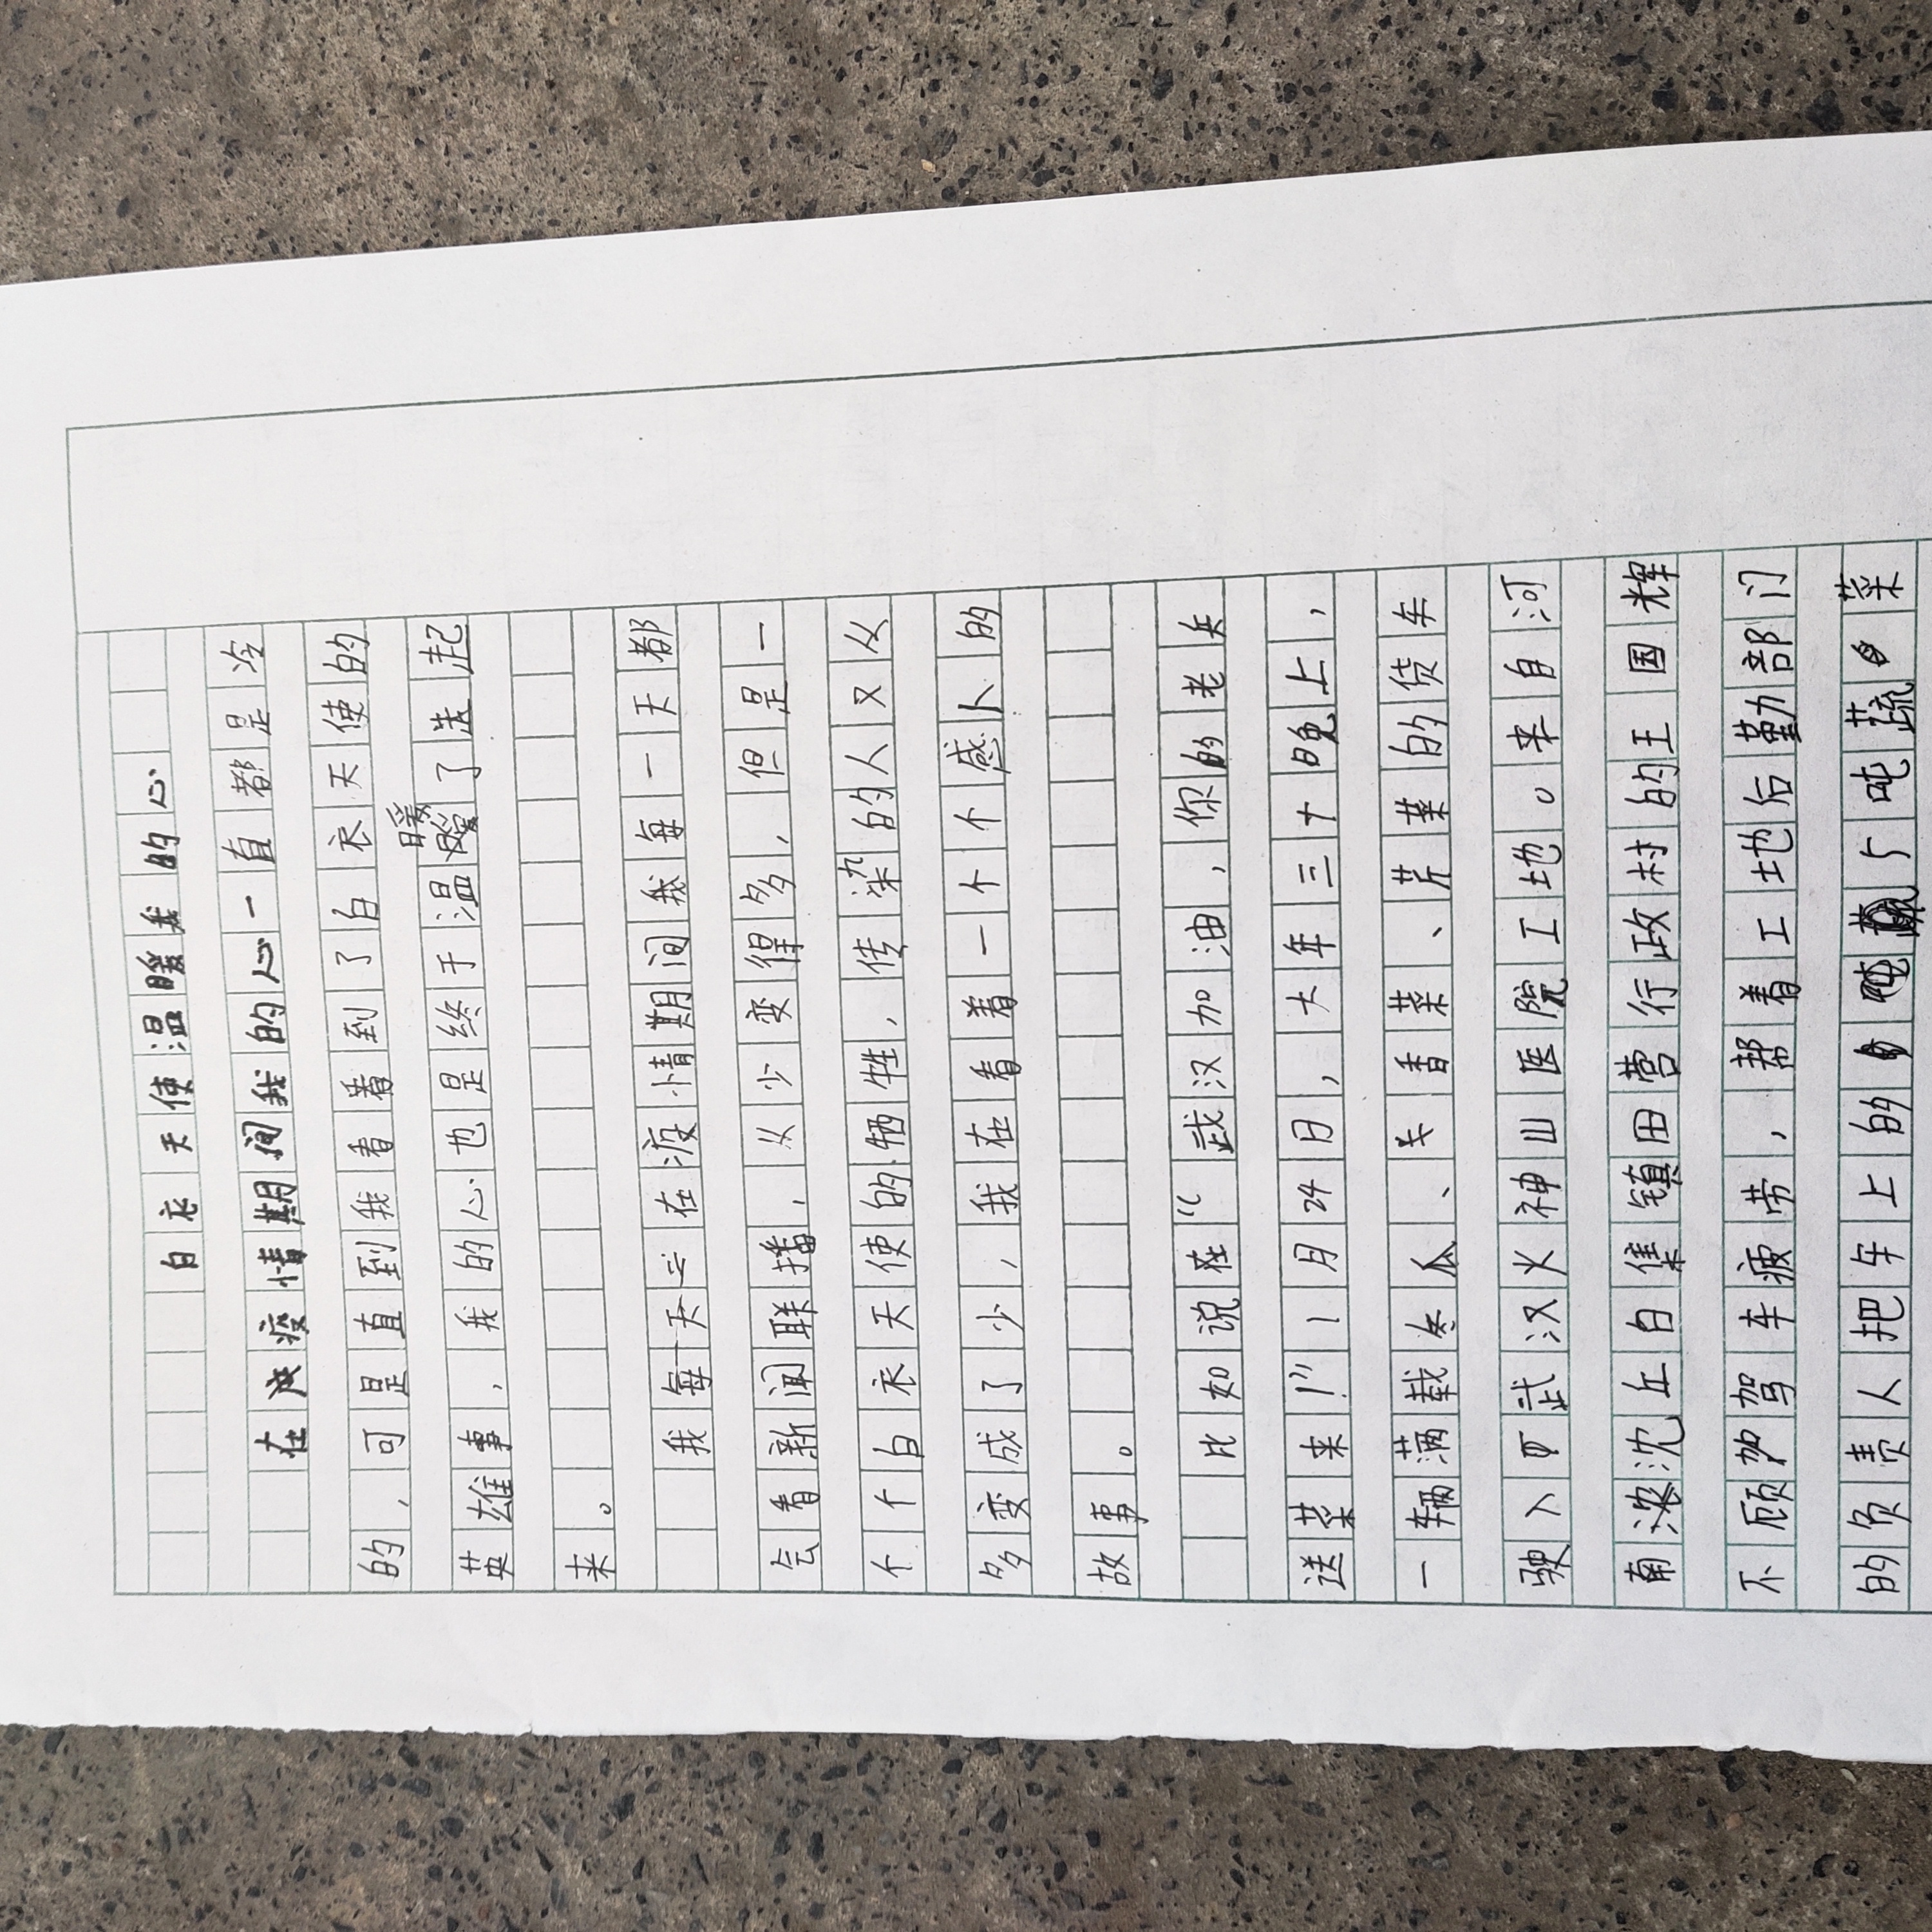 白衣天使温暖我的心
在疫情期间我的心一直都是冷
的，可是直到我看着到了白衣天使的
英雄事，我的心也是终于温暖了洗起
来。
我每天在疫情期间我每一天都
会看新闻联播，从少变得多，但是一
个个白衣天使的牺牲，传染的人又从
多变成了少，我在看着一个个感人的
故事。
比如说在“武汉加油，你的老兵
送菜来！”1月24日，大年三十晚上，
一辆满载冬瓜、香菜、芹菜的货车
驶入武汉火神山医院工地。来自河
南沈丘白集镇田营行政村的王国辉
不顾驾车疲劳，帮着工地后勤部门
的负责人把车上的吨蔬菜